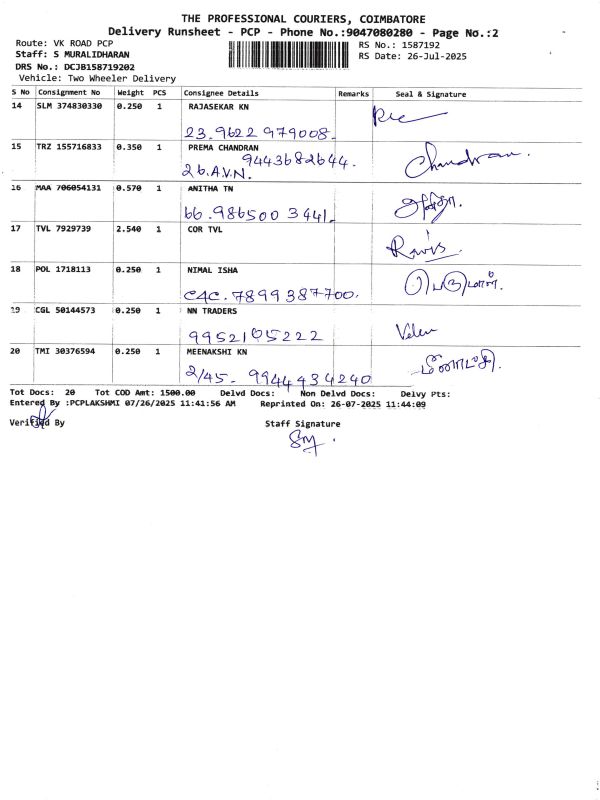 THE PROFESSIONAL COURIERS, COIMBATORE
Delivery Runsheet - PCP - Phone No.:9047080280 - Page No.:2
Route: VK ROAD PCP
Staff: S MURALIDHARAN
DRS No.: DCJB158719202
Vehicle: Two Wheeler Delivery
RS No.: 1587192
RS Date: 26-Jul-2025
S No Consignment No Weight PCS Consignee Details Remarks Seal & Signature
14 SLM 374830330 0.250 1 RAJASEKAR KN
23. 9622 979008.
15 TRZ 155716833 0.350 1 PREMA CHANDRAN
9443682644.
26.A.V.N. Chandran.
16 MAA 706054131 0.570 1 ANITHA TN
66. 986500 3441. அனிதா.
17 TVL 7929739 2.540 1 COR TVL
Ravis
18 POL 1718113 0.250 1 NIMAL ISHA
C4C. 7899387700. பெருமாள்.
19 CGL 50144573 0.250 1 NN TRADERS
9952105222 Velu
20 TMI 30376594 0.250 1 MEENAKSHI KN
2/45. 9944434240 மீனாட்சி.
Tot Docs: 20 Tot COD Amt: 1500.00 Delvd Docs: Non Delvd Docs: Delvy Pts:
Entered By :PCPLAKSHMI 07/26/2025 11:41:56 AM Reprinted On: 26-07-2025 11:44:09
Verified By Staff Signature